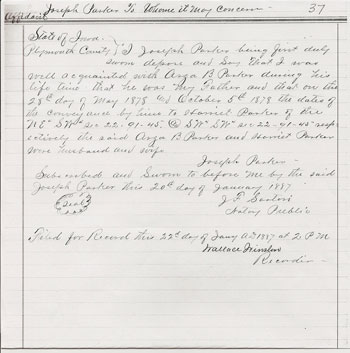 Affidavit
Joseph Parker To Whome it May concern
37
State of Iowa
Plymouth County } I Joseph Parker being first duly
sworn depose and Say that I was
well acquainted with Asza B Parker during his
life time that he was my Father and that on the
28th day of May 1878 and October 5th 1878 the dates of
the conveyance by him to Harriet Parker of the
NE¼ SW¼ sec 22-91-45 & SW¼ sec-22-91-45 resp
ectively the said Asza B Parker and Harriet Parker
were husband and wife
Joseph Parker
Subscribed and Sworn to before me by the said
Joseph Parker this 20th day of January 1887
Seal
J. F. Sartori
Notary Public
Filed for Record this 22d day of Jany A.D. 1887 at 2 P.M
Wallace Winslow
Recorder